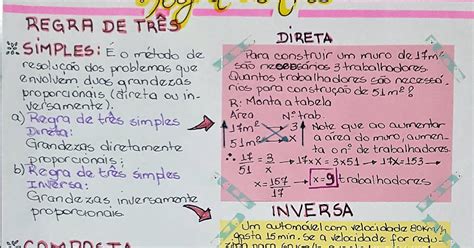 Regra de três
REGRA DE TRÊS
SIMPLES: É o método de
resolução dos problemas que
envolvem duas grandezas
proporcionais (direta ou in-
versamente).
a) Regra de três simples
Direta:
Grandezas diretamente
proporcionais;
b) Regra de três simples
Inversa:
Grandezas inversamente
proporcionais
COMPOSTA
DIRETA
Para construir um muro de 17m²
são necessários 3 trabalhadores.
Quantos trabalhadores são necessá-
rios para construção de 51m²?
R: Monta a tabela
Área Nº trab.
17m² 3
51m² x
Note que ao aumentar
a área do muro, aumen-
ta o nº de trabalhadores.
∴ 17/51 = 3/x → 17×x = 3×51 → 17x = 153 →
x = 157/17 → x = 9 trabalhadores
INVERSA
Um automóvel com velocidade 80km/h
gasta 15 min. Se a velocidade for redu-